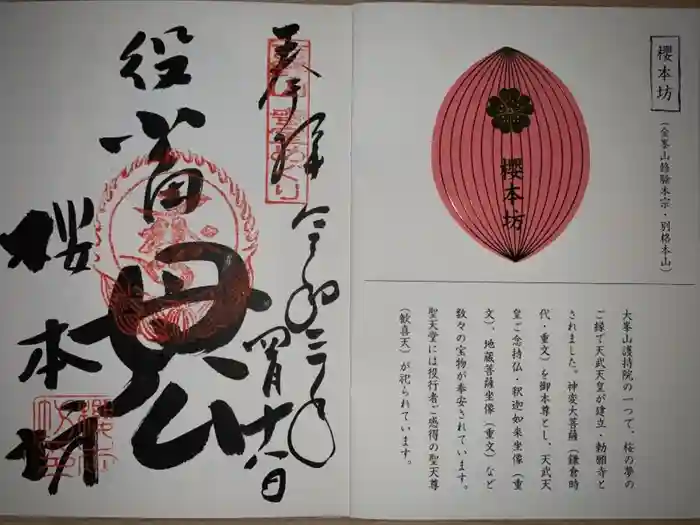 櫻本坊
(金峯山修験本宗・別格本山)
櫻本坊
大峯山護持院の一つで、桜の夢の
ご縁で天武天皇が建立・勅願寺と
されました。神変大菩薩(鎌倉時
代・重文)を御本尊とし、天武天
皇ご念持仏・釈迦如来坐像(重
文)、地蔵菩薩坐像(重文)など
数々の宝物が奉安されています。
聖天堂には役行者ご感得の聖天尊
(歓喜天)が祀られています。
奉拝
令和三年
四月十八日
役
櫻本坊